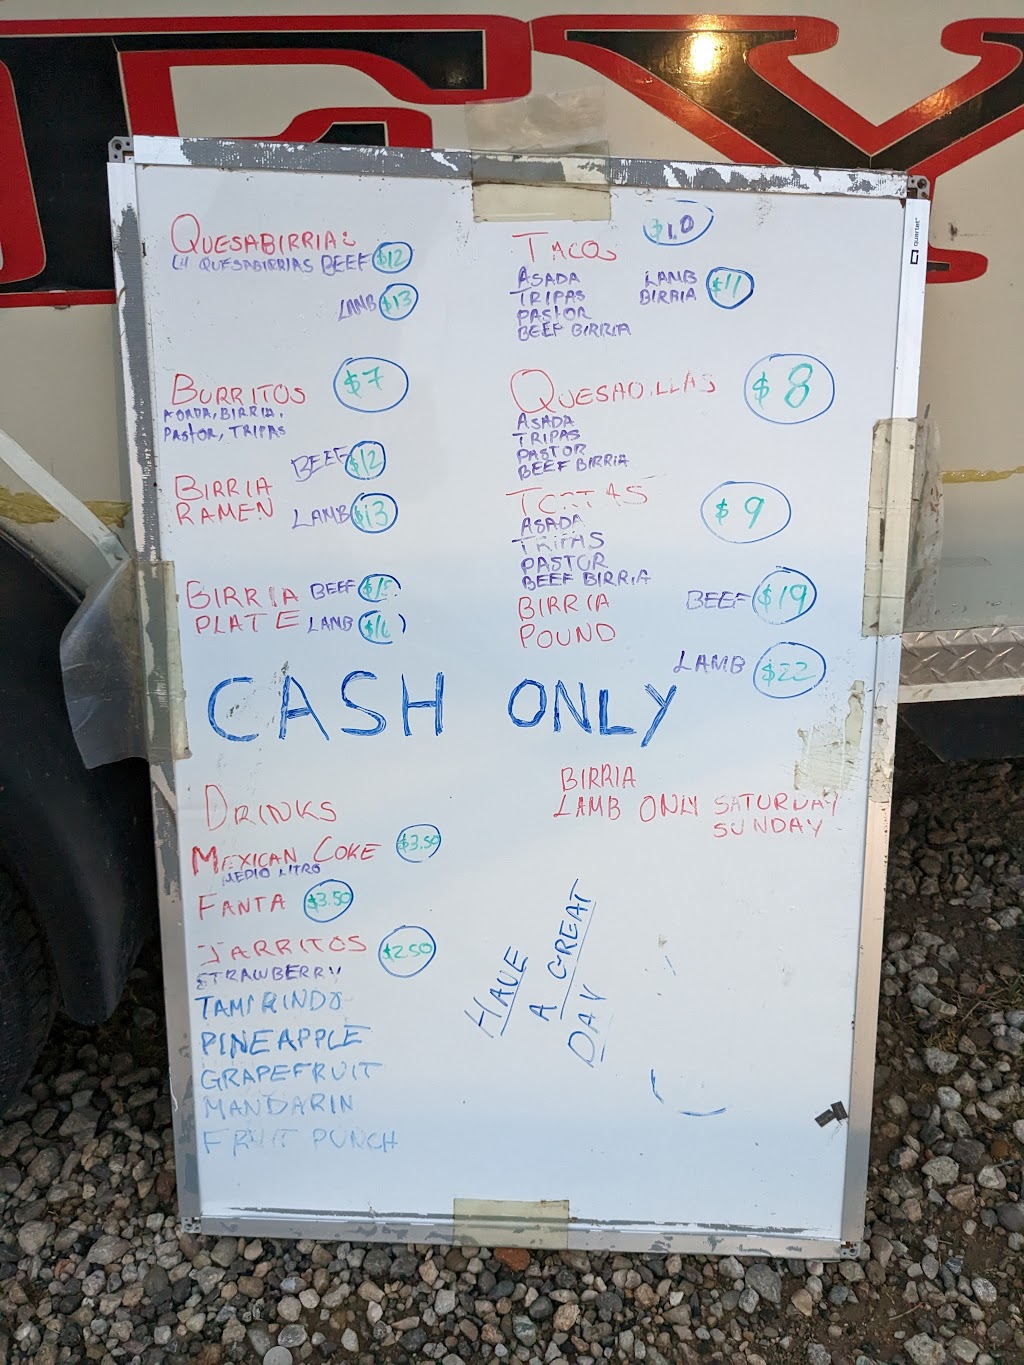 QUESABIRRIAS
(4 QUESABIRRIAS BEEF $12
LAMB $13
BURRITOS $7
ASADA, BIRRIA,
PASTOR, TRIPAS
BIRRIA BEEF $12
RAMEN LAMB $13
BIRRIA BEEF
PLATE LAMB
TACOS $10
ASADA
TRIPAS
PASTOR
BEEF BIRRIA
LAMB $11
BIRRIA
QUESADILLAS $8
ASADA
TRIPAS
PASTOR
BEEF BIRRIA
TORTAS $9
ASADA
TRIPAS
PASTOR
BEEF BIRRIA
BIRRIA BEEF $19
POUND
LAMB $22
CASH ONLY
DRINKS
MEXICAN COKE $3.50
MEDIO LITRO
FANTA $3.50
JARRITOS $2.50
STRAWBERRY
TAMIRINDO
PINEAPPLE
GRAPEFRUIT
MANDARIN
FRUIT PUNCH
BIRRIA
LAMB ONLY SATURDAY
SUNDAY
HAVE
A GREAT
DAY
quartet